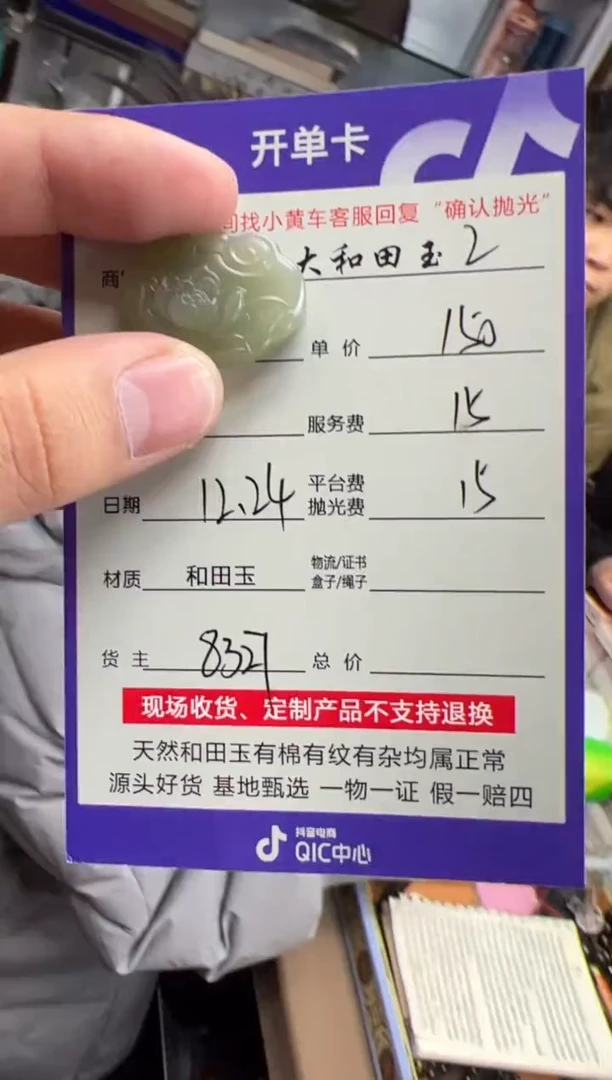 开单卡
找小黄车客服回复“确认抛光”
商 大和田玉2
单价 150
服务费 15
日期 12.24 平台费 抛光费 15
材质 和田玉 物流/证书 盒子/绳子
货主 8327 总价
现场收货、定制产品不支持退换
天然和田玉有棉有纹有杂均属正常
源头好货 基地甄选 一物一证 假一赔四
抖音电商
QIC中心